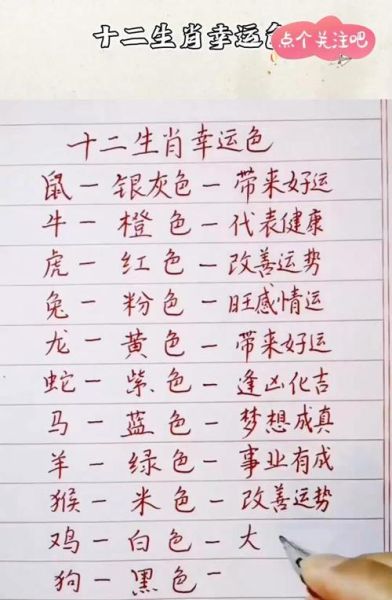 十二生肖幸运色
点个关注吧
十二生肖幸运色
鼠－银灰色－带来好运
牛－橙色－代表健康
虎－红色－改善运势
兔－粉色－旺感情运
龙－黄色－带来好运
蛇－紫色－逢凶化吉
马－蓝色－梦想成真
羊－绿色－事业有成
猴－米色－改善运势
鸡－白色－大
狗－黑色－